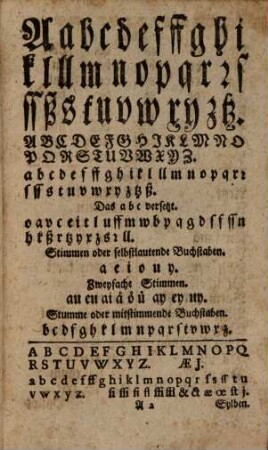 A a b c d e f ff g h i
k l ll m n o p q r ꝛ ſ
ſſ ß s t u v w x y z tz.
A B C D E F G H I K L M N O
P Q R S T U V W X Y Z.
a b c d e f f g h i k l ll m n o p q r ꝛ
ſ ſſ s t u v w x y z tz ß.
Das a b c verſetzt.
o a v c e i t l u ff m w b p q g d ſ f ſſ n
h k ß r tz y x z s ꝛ ll.
Stimmen oder ſelbſtlautende Buchſtaben.
a e i o u y.
Zweyfache Stimmen.
au eu ai á ö ü ay ey uy.
Stumme oder mitſtimmende Buchſtaben.
b c d f g h k l m n p q r ſ t v w x z.
A B C D E F G H I J K L M N O P Q
R S T U V W X Y Z. Æ J.
a b c d e f ff g h i k l m n o p q r ſ s ſſ t u
v w x y z. & æ œ ſt j.
A a Sylben.